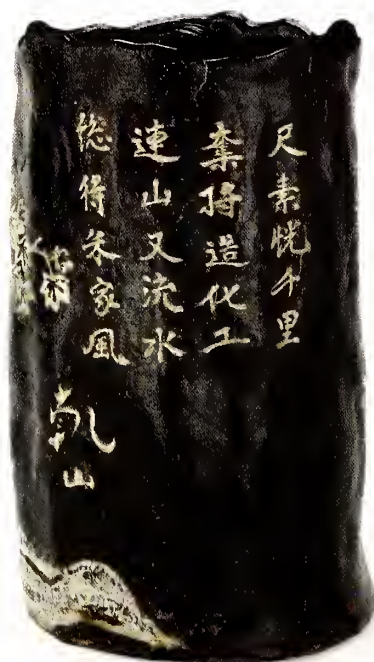 尺素恍千里
奪將造化工
連山又流水
總得米家風
乾山